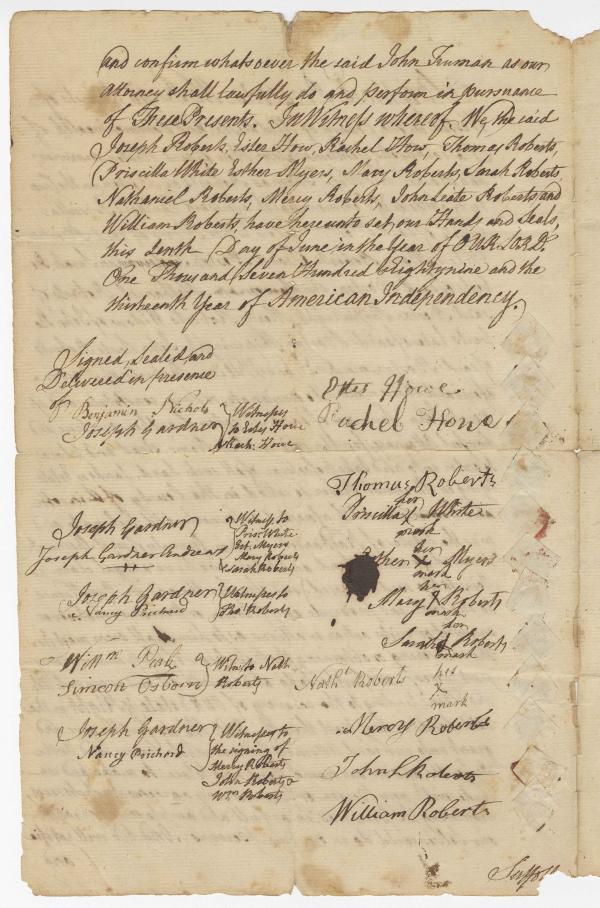 and confirm whatsoever the said John Truman as our
attorney shall lawfully do and perform in pursuance
of These Presents. In Witness whereof We, the said
Joseph Roberts, Ester How, Rachel How, Thomas Roberts,
Priscilla White Esther Myers, Mary Roberts, Sarah Roberts
Nathaniel Roberts, Mercy Roberts, John Leate Roberts and
William Roberts, have hereunto set our Hands and Seals,
this tenth Day of June in the Year of OUR LORD,
One Thousand Seven Hundred & Eightynine and the
thirteenth Year of American Independency.
Signed, Sealed and
Delivered in presence
of Benjamin Nichols
Joseph Gardner
Witnesses
to Ester Howe
& Rach. Howe
Ester Howe
Rachel Howe
Thomas Roberts
Joseph Gardner
Joseph Gardner Andrews
Witness to
Prisc White
Est. Myers
Mary Roberts
Sarah Roberts
her
Priscilla X White
mark
her
Esther X Myers
mark
Joseph Gardner
Nancy Prichard
Witnesses to
Tho. Roberts
her
Mary X Roberts
mark
her
Sarah X Roberts
mark
Will.m
Simeon Osborn
Witns. to Nath
Roberts
Nath.l Roberts
his
X
mark
Joseph Gardner
Nancy Prichard
Witnesses to
the signing of
Mercy Roberts
John Roberts &
Wm Roberts
Mercy Roberts
John L Roberts
William Roberts